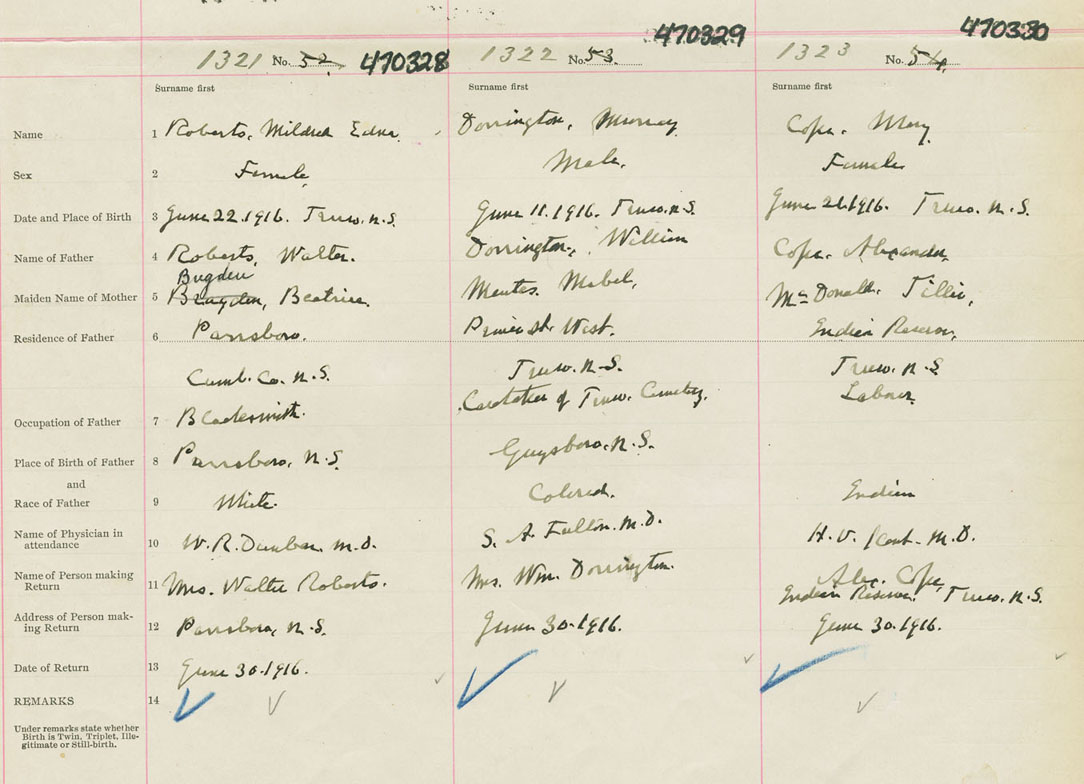 470328 470329 470330
1321 No. 52. 1322 No. 53. 1323 No. 54.
Surname first Surname first Surname first
Name 1 Roberts, Mildred Edna. Dorrington, Murray. Cope. Mary.
Sex 2 Female, Male. Female
Date and Place of Birth 3 June 22.1916. Truro. N.S. June 11.1916. Truro. N.S. June 21.1916. Truro. N.S.
Name of Father 4 Roberts, Walter. Dorrington, William Cope. Alexander,
Bugden
Maiden Name of Mother 5 Beatrice. Mabel, McDonald. Tillie,
Residence of Father 6 Parrsboro. Prince St. West. Indian Reserve,
Cumb. Co. N.S. Truro. N.S. Truro. N.S
Occupation of Father 7 Blacksmith. Caretaker of Truro. Cemetery. Labour
Place of Birth of Father 8 Parrsboro, N.S. Guysboro, N.S.
and
Race of Father 9 White. Colored. Indian
Name of Physician in
attendance 10 W.R. Dunbar. M.D. S. A. Fulton. M.D. H.V. Kent. M.D.
Name of Person making
Return 11 Mrs. Walter Roberts. Mrs. Wm. Dorrington. Alex. Cope,
Indian Reserve. Truro. N.S.
Address of Person mak-
ing Return 12 Parrsboro, N.S. June 30.1916. June 30.1916.
Date of Return 13 June 30.1916.
REMARKS 14
Under remarks state whether
Birth is Twin, Triplet, Ille-
gitimate or Still-birth.